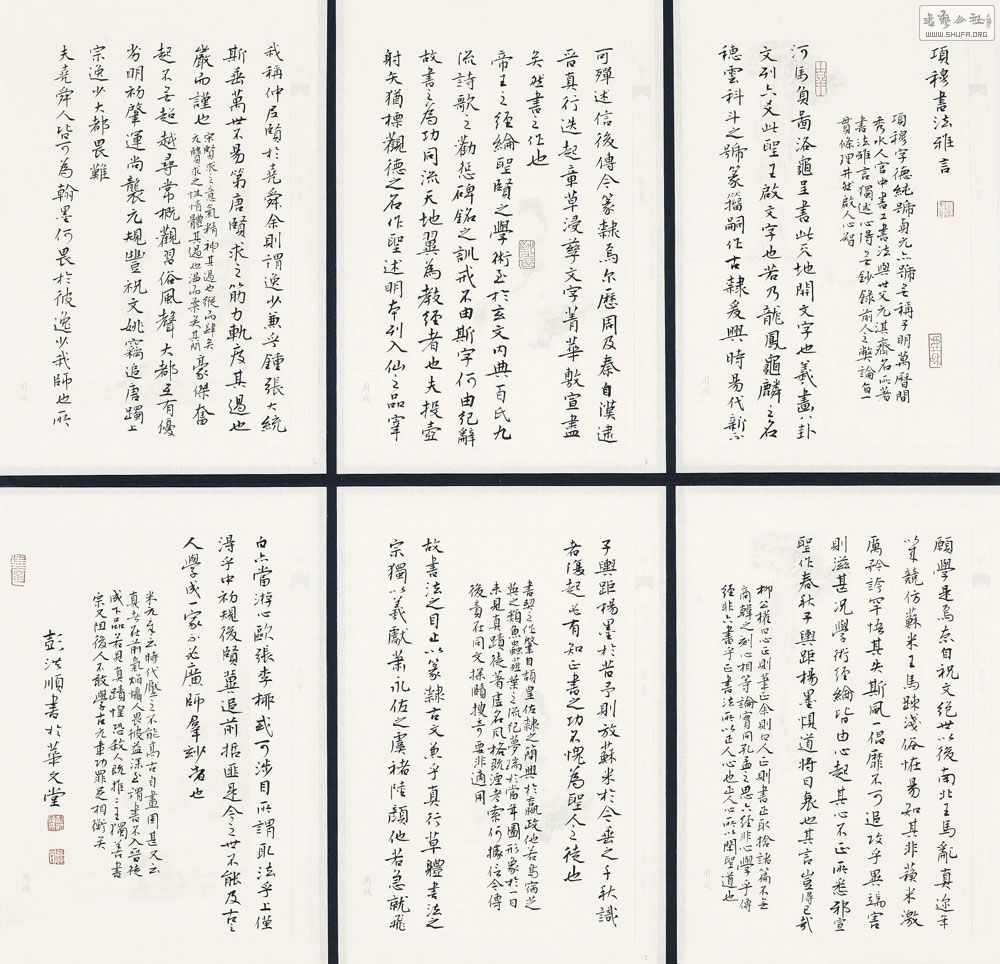 項穆書法雅言
項穆字德純號貞元亦號無稱子明萬曆間
秀水人官中書工書法與世父元淇齋名所著
書法雅言獨述心得無鈔錄前人之弊論自一
貫條理井然啟人心智
河馬負圖洛龜呈書此天地開文字也羲畫八卦
文列六爻此聖王啟文字也若乃龍鳳龜麟之名
穗雲科斗之號篆籀嗣作古隸爰興時易代新不
可殫述信後傳今篆隸焉尔歷周及秦自漢逮
晉真行迭起章草浸孳文字菁華敷宣盡
矣然書之作也
帝王之經綸聖賢之學術至於玄文內典百氏九
流詩歌之勸懲碑銘之訓戒不由斯字何由紀辭
故書之為功同流天地翼為教經者也夫投壺
射矢猶標觀德之名作聖述明本列入仙之品宰
我稱仲尼頤於堯舜余則謂逸少兼乎鍾張大統
斯垂萬世不易第唐賢求之筋力軌度其過也
嚴而謹也宋賢求之意氣精神其過也縱而肆矣
元賢求之性情體其過也溫而柔矣其間豪傑奮
起不無超越尋常概觀習俗風聲大都互有優
劣明初肇運尚襲元規豐祝文姚竊追唐躅上
宗逸少大都畏難
夫堯舜人皆可為翰墨何畏於彼逸少我師也所
願學是焉奈自祝文絕世以後南北王馬亂真邇年
以來競仿蘇米王馬疎淺俗怪易知其非蘇米激
厲矜誇罕悟其失斯風一倡靡不可追攻乎異端害
則滋甚況學術經綸皆由心起其心不正所悉邪宣
聖作春秋子輿距楊墨惧道將日衰也其言豈得已哉
柳公權曰心正則筆正余則曰人正則書正取捨諸篇不無
商韓之刻心相等論實同孔孟之思六經非心學乎傳
經非六書乎正書法所以正人心也正人心所以閑聖道也
子輿距楊墨於昔予則放蘇米於今垂之千秋識
者復起必有知正書之功不愧為聖人之徒也
書契之作肇自頡皇佐隸之簡興於嬴政他若鳥宿芝
英之類魚蟲薤葉之流紀夢瑞於當年圖形象於一日
未見真蹟徒著虛名風格既湮考索何據信今傳
後責在同文探賾搜奇要非適用
故書法之目止以篆隸古文兼乎真行草體書法之
宗獨以羲獻蕭永佐之虞褚陸顏他若急就飛
白亦當游心歐張李柳或可涉目所謂取法乎上僅
得乎中初規後賢冀追前哲匪是今之世不能及古之
人學成一家不必廣師群妙者也
米元章云時代壓之不能高古自畫固甚又云
真者在前氣焰懾人畏彼益深至謂書不入晉徒
成下品若見真蹟惶恐殺人既推二王獨善書
宗又阻後人不敢學古元章功罪足相衡矣
彭洪順書於華文堂
書藝公社
WWW.SHUFA.ORG